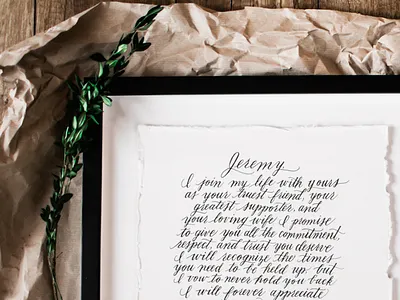 Jeremy
I join my life with yours
as your truest friend, your
greatest supporter, and
your loving wife. I promise
to give you all the commitment,
respect, and trust you deserve
I will recognize the times
you need to be held up, but
I vow to never hold you back
I will forever appreciate